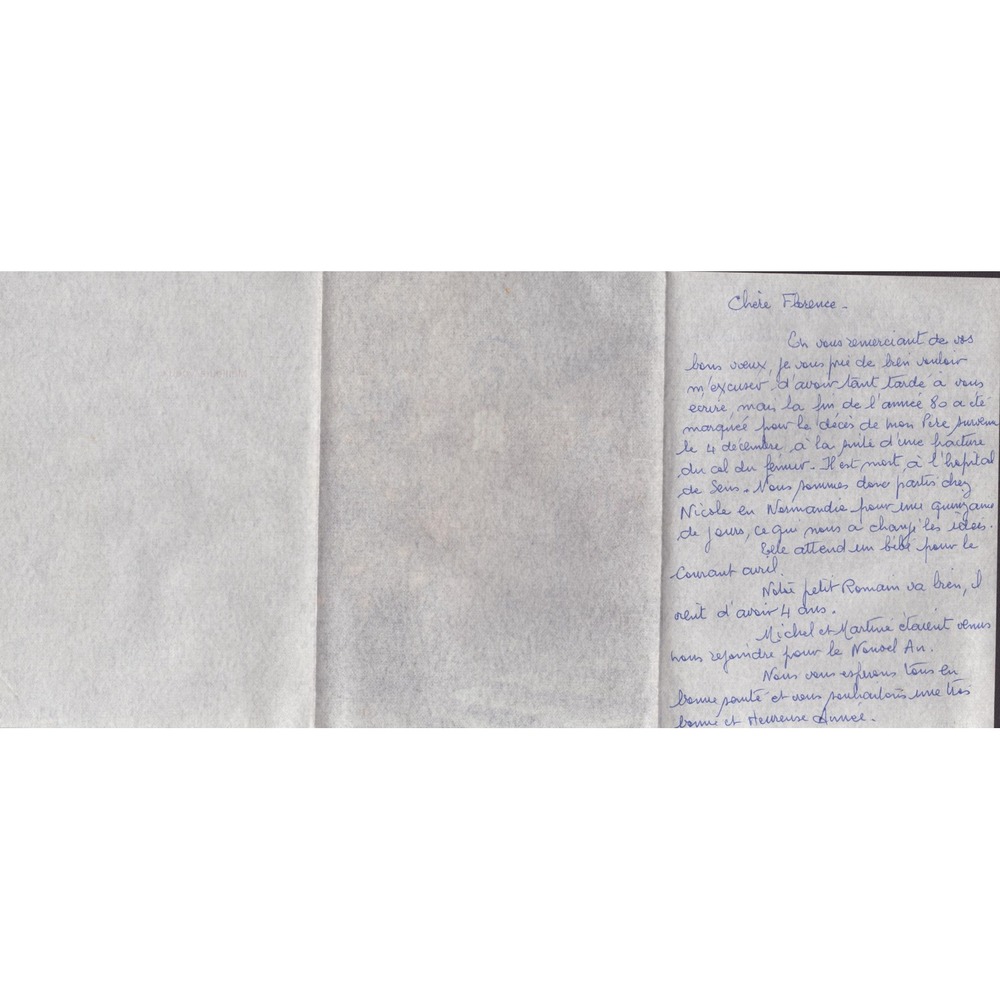 Chère Florence -
En vous remerciant de vos
bons vœux, je vous prie de bien vouloir
m'excuser d'avoir tant tardé à vous
écrire, mais la fin de l'année 80 a été
marquée pour le décès de mon Père survenu
le 4 décembre, à la suite d'une fracture
du col du fémur. Il est mort à l'hopital
de Sens. Nous sommes donc partis chez
Nicole en Normandie pour une quinzaine
de jours, ce qui nous a changé les idées.
Elle attend un bébé pour le
Courant avril.
Notre petit Romain va bien, il
vient d'avoir 4 ans.
Michel et Martine étaient venus
nous rejoindre pour le Nouvel An.
Nous vous espérons tous en
bonne santé et vous souhaitons une très
bonne et Heureuse Année.